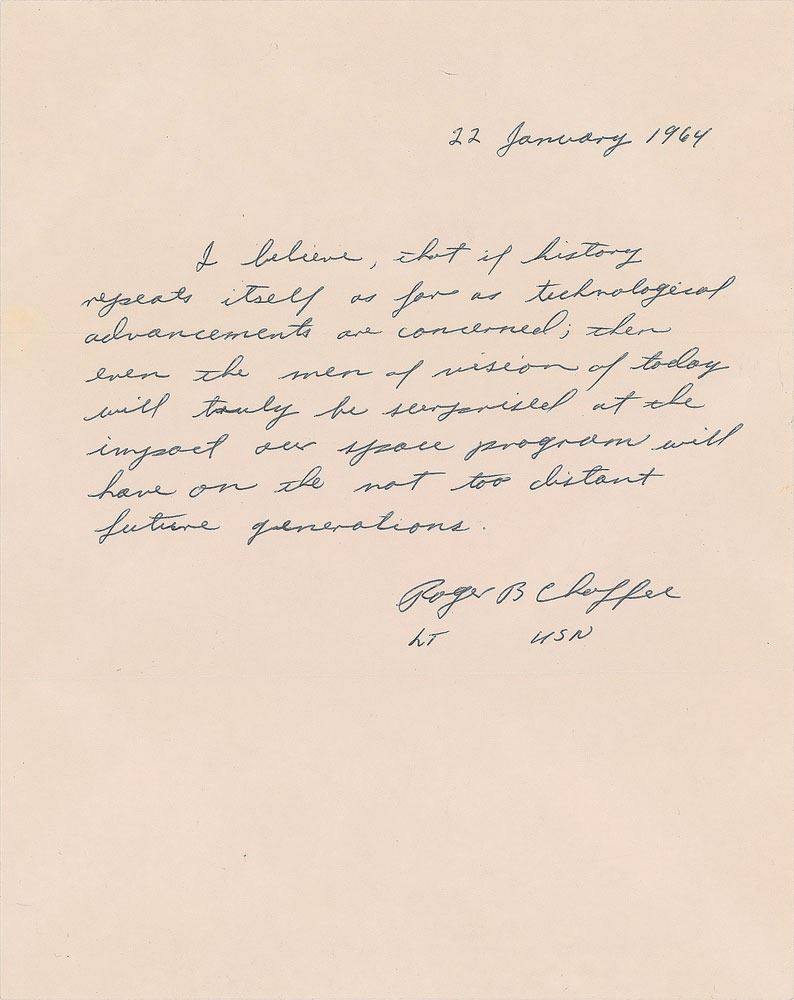 22 January 1964
I believe, that if history
repeats itself as far as technological
advancements are concerned; then
even the men of vision of today
will truly be surprised at the
impact our space program will
have on the not too distant
future generations.
Roger B Chaffee
LT USN